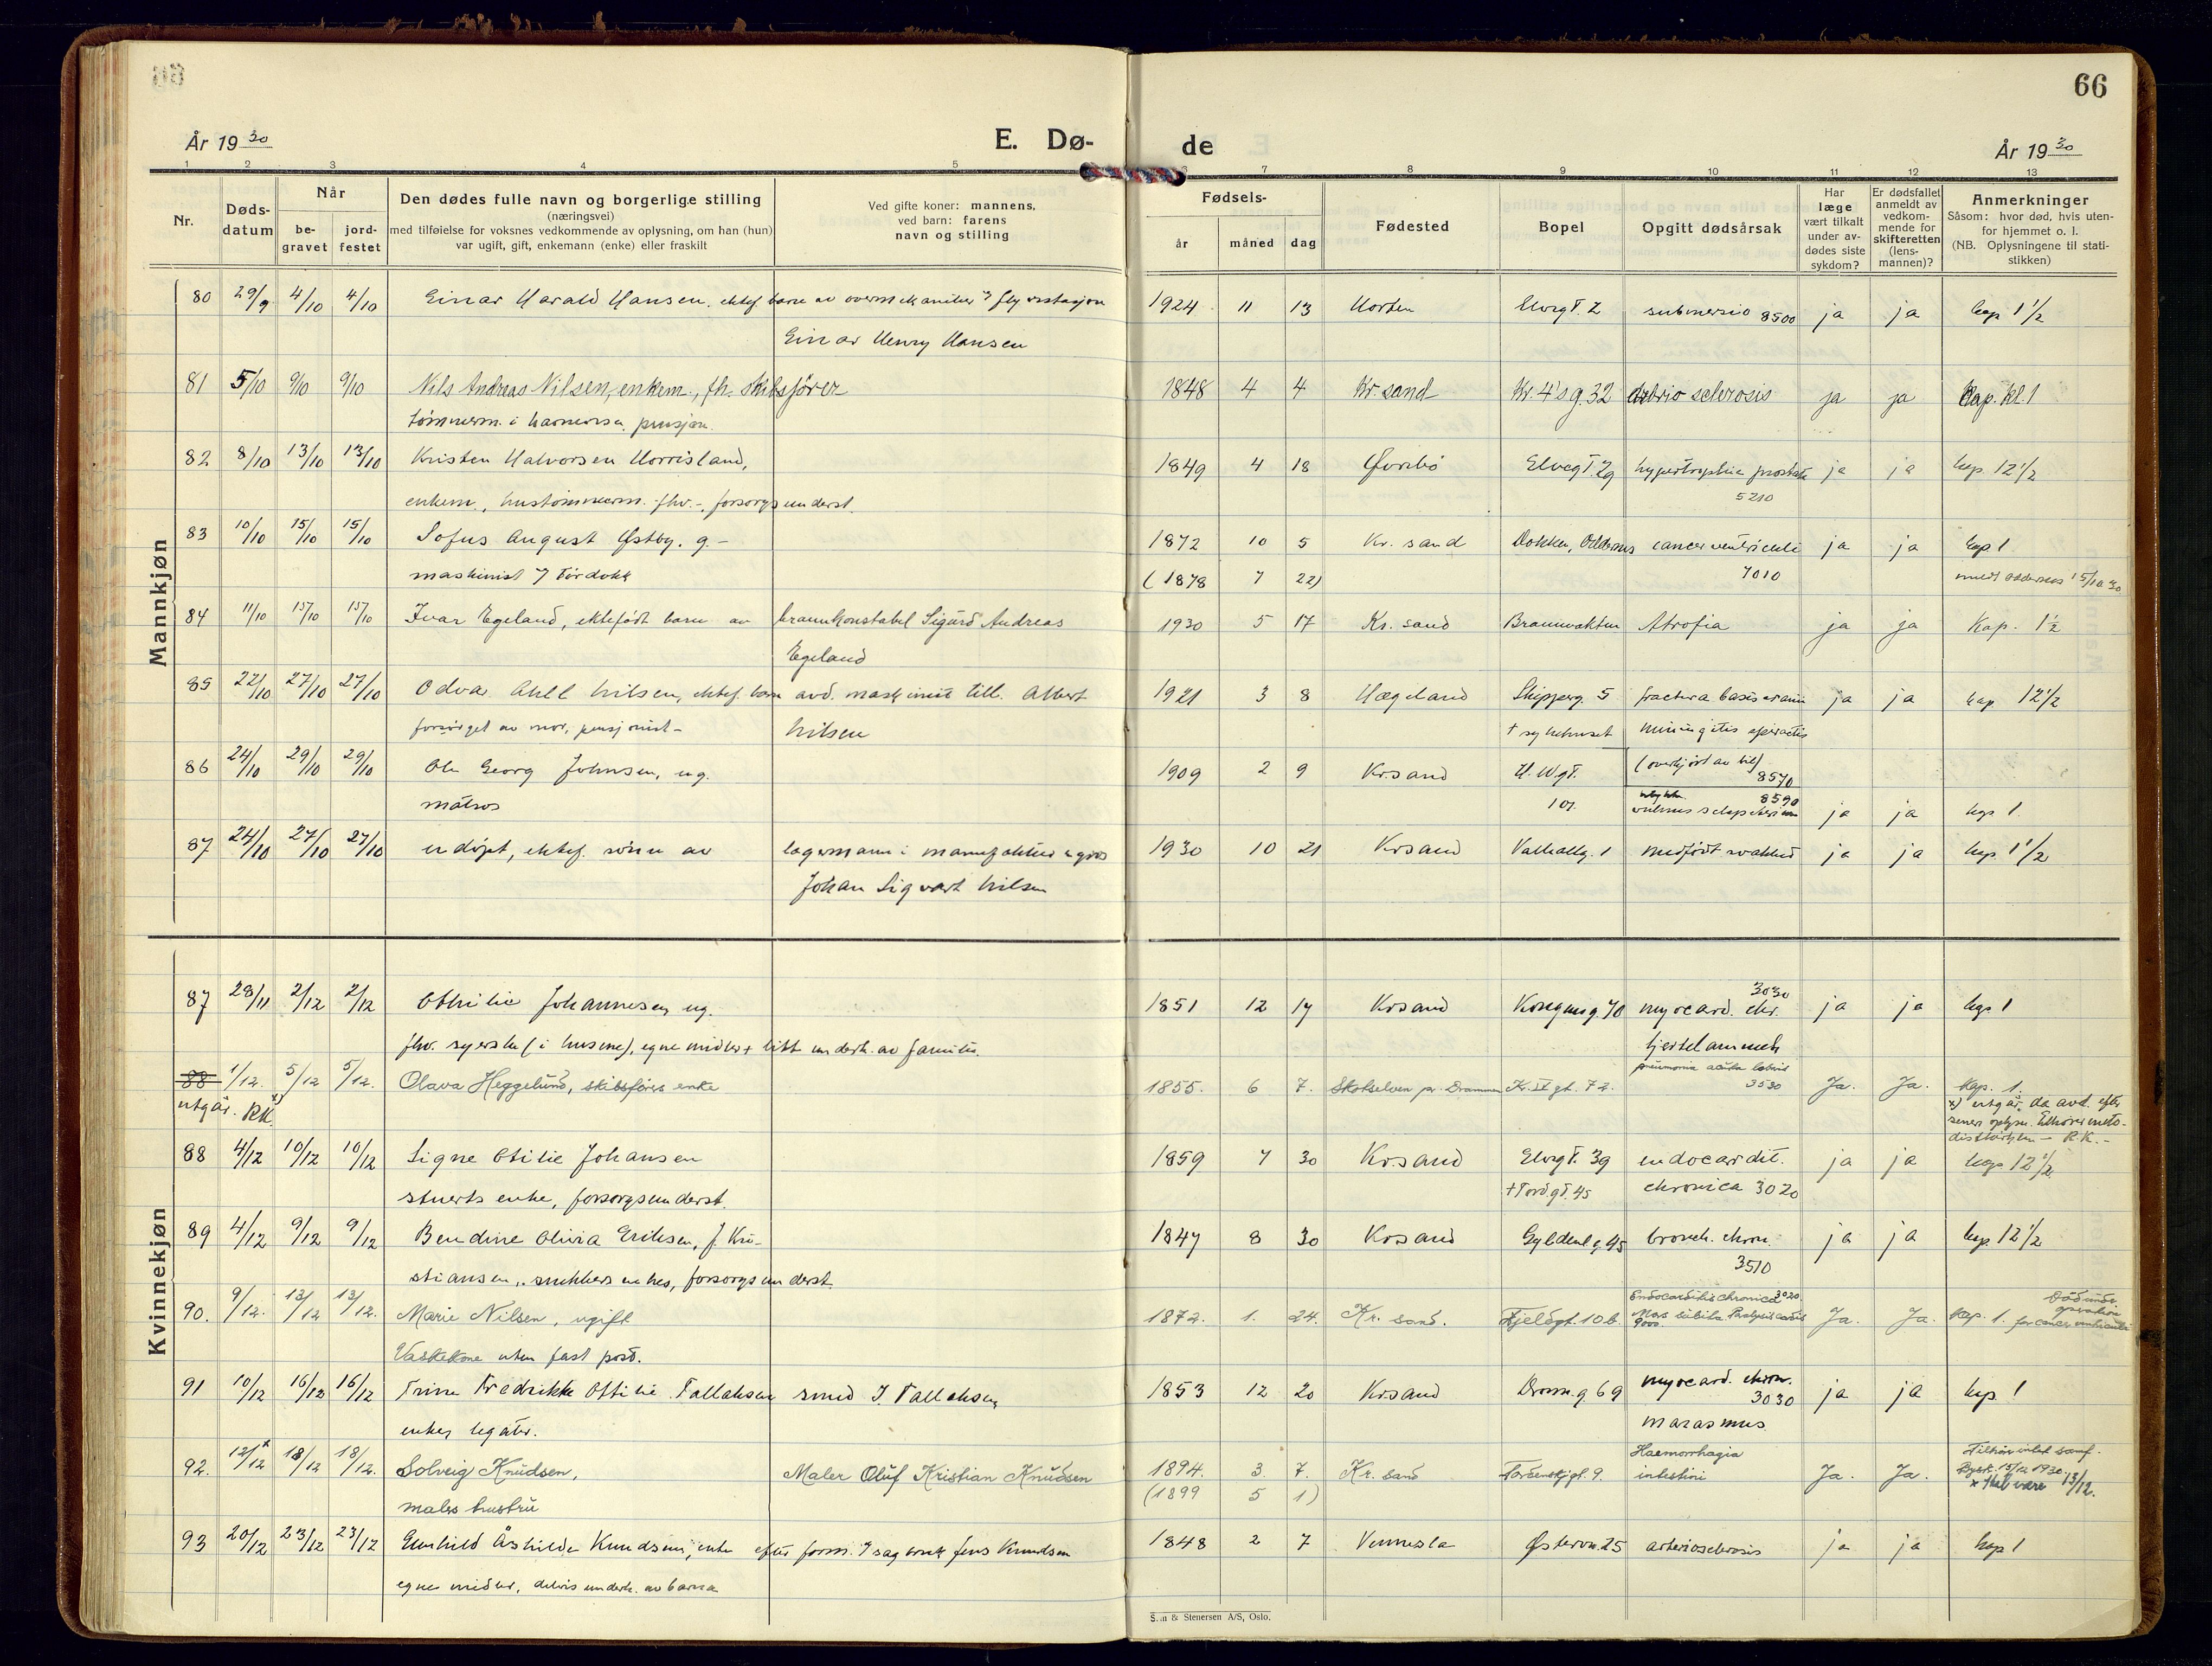 66
År 1930
E. Dø-
de
År 1930
1 2 3 4 5 6 7 8 9 10 11 12 13
Nr.
Døds-
datum
Når
be-
gravet
jord-
festet
Den dødes fulle navn og borgerlige stilling
(næringsvei)
med tilføielse for voksnes vedkommende av oplysning, om han (hun)
var ugift, gift, enkemann (enke) eller fraskilt
Ved gifte koner: mannens,
ved barn: farens
navn og stilling
Fødsels-
år måned dag
Fødested
Bopel
Opgitt dødsårsak
Har
læge
vært tilkalt
under av-
dødes siste
sykdom?
Er dødsfallet
anmeldt av
vedkom-
mende for
skifteretten
(lens-
mannen)?
Anmerkninger
Såsom: hvor død, hvis uten-
for hjemmet o. l.
(NB. Oplysningene til stati-
stikken)
Mannkjøn
80 29/9 4/10 4/10 Einar Harald Hansen, ektef. barn av overmekaniker 1924 11 13 Horten Elvegt. 2 submersio 8500 ja ja kap 1 1/2
Einar Henry Hansen
81 5/10 9/10 9/10 Nils Andreas Nilsen, enkem., fh. Skibsfører 1848 4 4 Kr.sand Kr. 4's g. 32 arterio sclerosis ja ja Kap. kl. 1
tømmerm. i
82 8/10 13/10 13/10 Kristen Halvorsen Horrisland, 1849 4 18 Øvrebø Elvegt. 29 hypertrophia prostat ja ja kap. 12 1/2
enkem., hustømmerm. fhv. -, forsorgsunderst. 5210
83 10/10 15/10 15/10 Sofus August Østby. g. - 1872 10 5 Kr. sand Dokken, Oddernes cancer ventriculi ja ja kap 1
maskinist Tørdokk (1878 7 22) 7010 Oddernes 15/10 30
84 11/10 15/10 15/10 Ivar Egeland, ektefødt barn av brannkonstabel Sigurd Andreas 1930 5 17 Kr. sand Brannvakten Atrofia ja ja Kap. 1 1/2
Egeland
85 22/10 27/10 27/10 Odvar Nilsen, ektef. barn avd. maskinist Albert 1921 3 8 Hægeland Skipperg. 5 fractura basis cranii ja ja kap. 12 1/2
forsørget av mor, pensjonist - Nilsen + sykehuset
86 24/10 29/10 29/10 Ole Georg Johnsen, ug. 1909 2 9 Kr.sand H. W gt. (overkjørt av bil) 8570
matros 107 8590 ja ja kap 1.
87 24/10 27/10 27/10 ei døpt, ektef. sønn av lagermann i manufaktur en gros 1930 10 21 Kr.sand Valhallg. 1 medfødt svakhed ja ja kap. 1 1/2
Johan Sigvart Nilsen
Kvinnekjøn
87 28/11 2/12 2/12 Othilie Johannesen, ug. 1851 12 14 Kr.sand Kongensg. 70 myocard. chr. 3030 ja ja kap 1
fhv. syerske (i husene), egne midler + litt underh. av familie. hjertelammels
88 1/12. 5/12 5/12. Olava Heggelund, skibsførers enke 1855. 6 7. Skotselven pr. Drammen Kr. IV gt. 72. pneumonia acuta 3530 Ja. Ja. Kap. 1.
utgår. x) RK x) utgår, da avd. efter
senere oplysn. tilhører meto-
distkirken - R.K. -
88 4/12 10/12 10/12 Signe Otilie Johansen 1859 7 30 Kr.sand Elvegt. 39 endocardit. ja ja kap 12 1/2
stuerts enke, forsorgsunderst. + Tordgt. 45 chronica 3020
89 4/12 9/12 9/12 Bendine Olivia Eriksen, f. Kri- 1847 8 30 Kr.sand Gyldenl.g. 45 bronch. chron. ja ja kap. 12 1/2
stiansen, snekkers enke, forsorgsunderst. 3510
90. 9/12. 13/12 13/12. Marie Nilsen, ugift 1872. 1. 24. Kr. sand. Fjeldgt. 10 b. Endocarditis chronica 3020 Mors subita. Paralysis cordis 9000 Ja. Ja. Kap. 1. Død under operation for cancer ventriculi
Vaskekone uten fast post.
91 10/12 16/12 16/12 Trine Fredrikke Ottilie Tallaksen smed J. Tallaksen 1853 12 20 Kr.sand Dronn.g. 69 myocard. chron. 3030 ja ja kap. 1
enke, legater. marasmus
92. 12/12 x 18/12 18/12. Solveig Knudsen, Maler Oluf Kristian Knudsen 1894. 3. 7. Kr. sand Tordenskj.gt. 9. Haemorrhagia intestini Ja. Ja. Tilhør intet samf.
malers hustru (1899 5 1) 15/12 1930. x skal være 13/12.
93 20/12 23/12 23/12 Gunhild Åshilde Knudsen, enke efter form. sagbruk Jens Knudsen 1848 2 7 Vennesla Østervn. 25 arteriosclerosis ja ja kap 1
egne midler, delvis underh. av barna
& Stenersen A/S, Oslo.